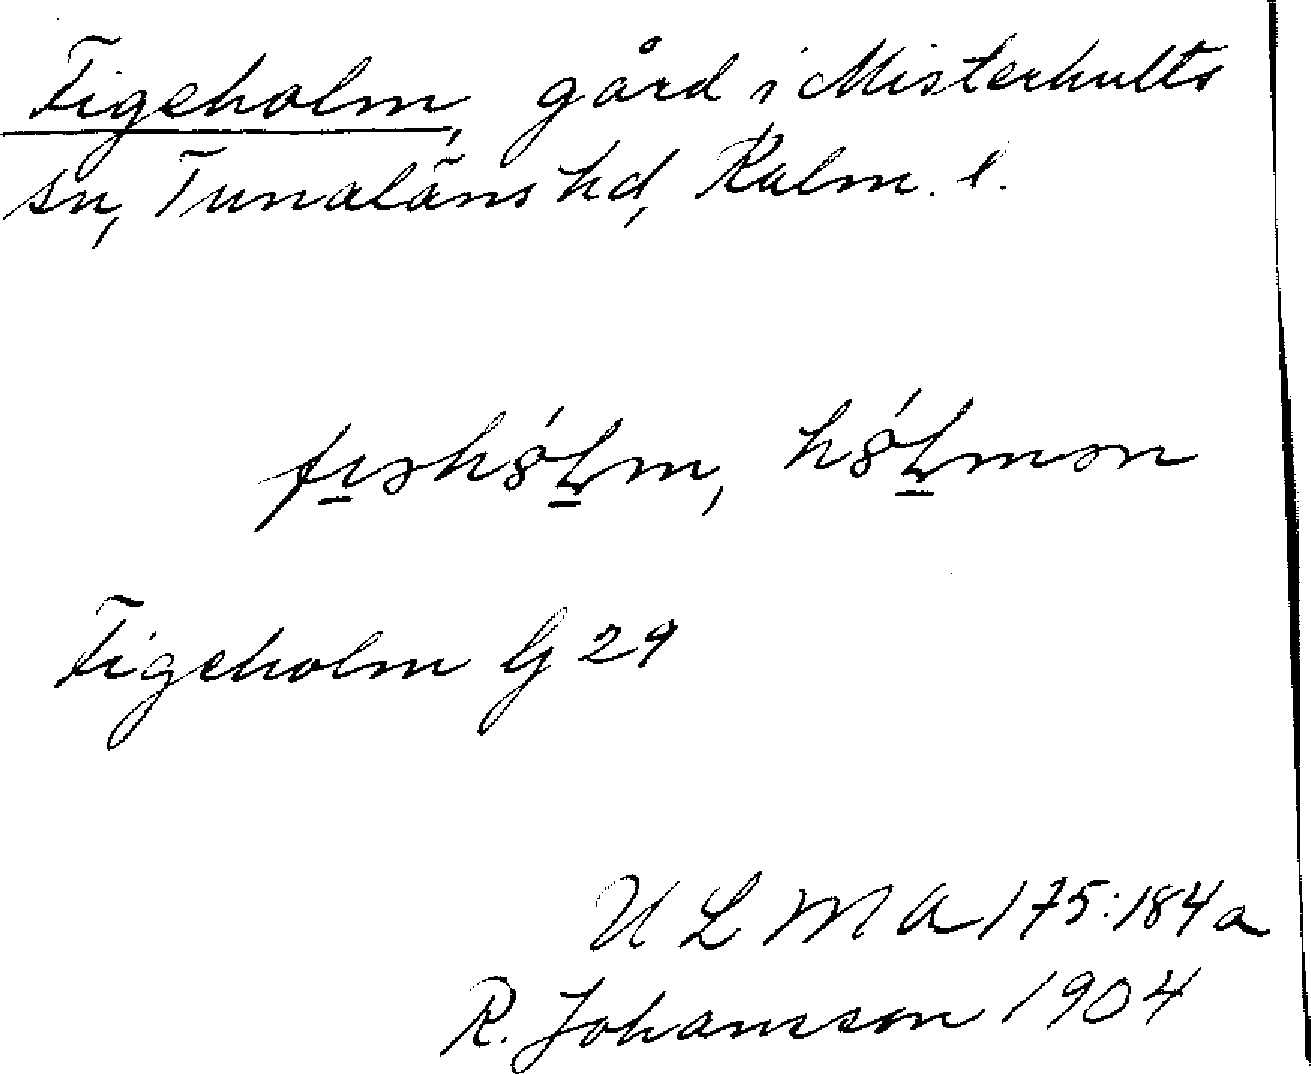 Figeholm, gård i Misterhults
sn, Tunaläns hd, Kalm. l.
Figeholm G 29
ULMA 175:184a
R. Johansson 1904